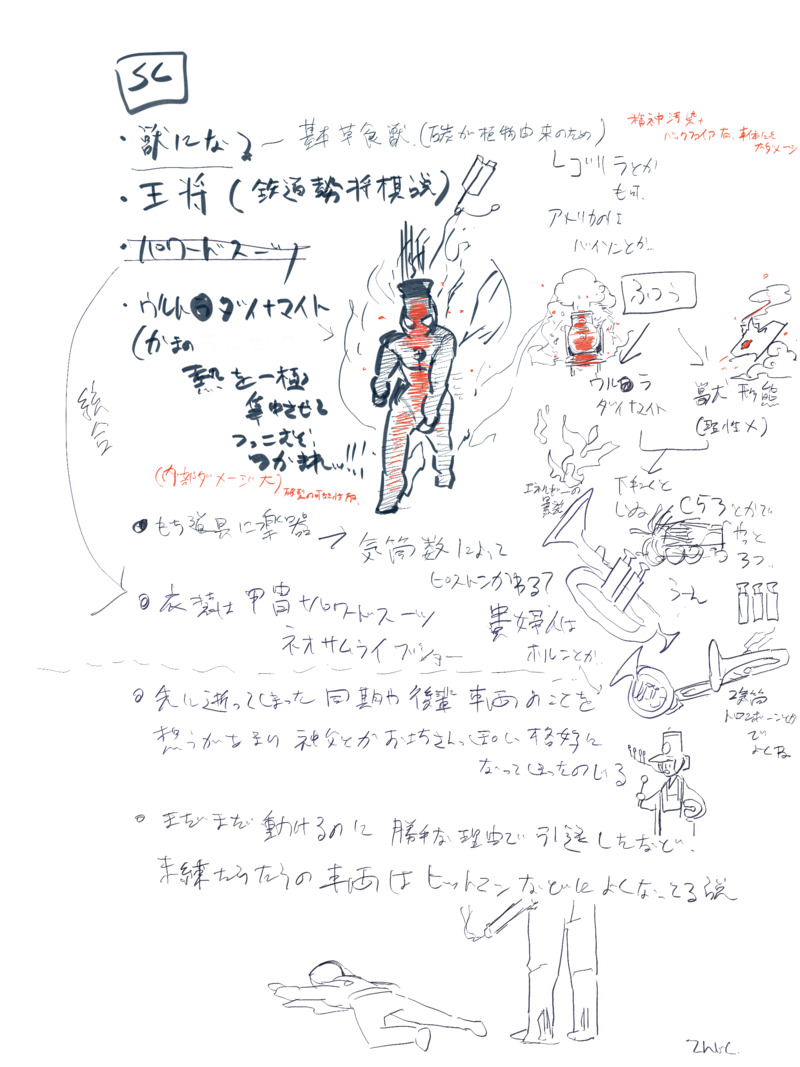 SL
・獣になる〜 基本草食獣.(石炭が植物由来のため)
精神汚染+
バックファイア有、車体にも
大ダメージ
・王将(鉄道勢将棋説)
レゴリラとか
も可、
アメリカのは
バイソンとか..
・パワードスーツ
・ウルトラダイナマイト
(かまの
熱を一極
集中させる
つっこむぞ!
つかまれッ!!!
(内部ダメージ大)
統合
ふつう
ウルトラ
ダイナマイト
最大形態
(理性×)
エネルギーの
下キューと
しぬ
C53とかで
やっと
3つ..
うーん
・もち道具に楽器 → 気筒数によって
ピストンかわる?
・衣装は甲冑パワードスーツ
ネオサムライブショー
貴婦人は
ホルンとか..
2気筒
トロンボーンとか
で
よくね
・先に逝ってしまった同期や後輩車両のことを
想うがあまり 神父とかお坊さんっぽい格好に
なってしまったのいる
・まだまだ動けるのに 勝手な理由で引退したなど、
未練たらたらの車両はヒットマンなどによくなってる説